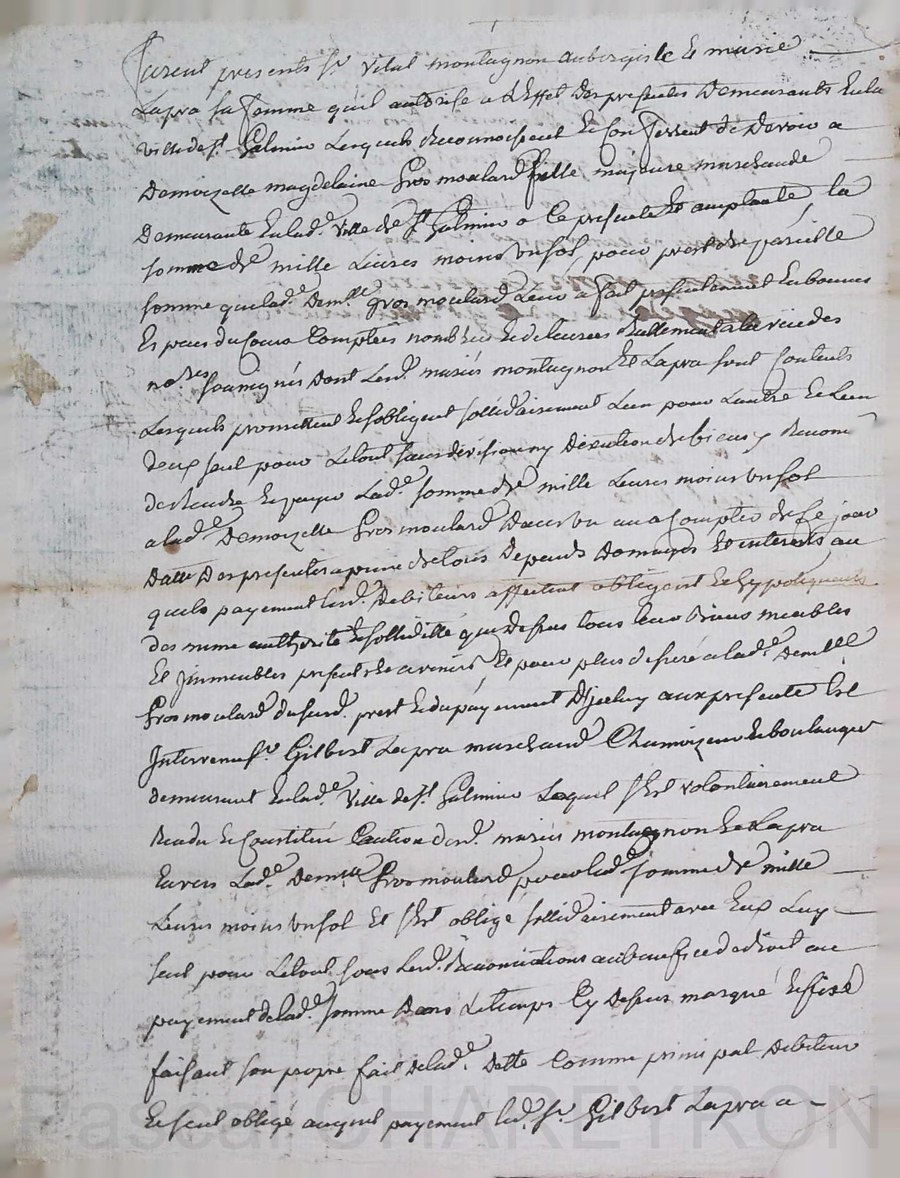 furent presents sr. vital montagnon aubergiste et marie
Lapra sa femme quil authorise a L'effet Des presentes Demeurants En la
ville de st. Galmier Lesquels Reconnoissent Et Confessent de Devoir a
Demoizelle magdelaine Grosmoulard fille majeure marchande
Demeurante En lad.e Ville de st Galmier a Ce presente Et acceptante, la
somme de mille Livres moins un sol, pour prest de pareille
somme que lad.e Dem.lle Grosmoulard Leur a fait presentement En bonnes
Especes du Cours Comptées nombrées Et delivrées Reellement a la vüe des
no.res soussignés Dont Lesd. mariés montagnon Et Lapra sont Contents
Lesquels promettent Et sobligent sollidairement Lun pour Lautre Et Lun
deux seul pour Le tout sans division ny Discution de biens y Renonc.
de Rendre Et payer Lad.e somme de mille Livres moins un sol
a lad.e Demoizelle Grosmoulard Dans un an a Compter de Ce jour
Datte Des presentes a peine de tous Depends Domages Et interests, au
quels payement lesd. Debiteurs affectent obligent Et hypotequent
des meme authorité Et solliditté que Dessus tous Leurs Biens meubles
Et jmmeubles presents Et avenirs, Et pour plus de sureté a lad.e Dem.lle
Grosmoulard dususd. prest Et du payement Djceluy aux presentes Est
Intervenu sr. Gilbert Lapra marchand Chamoizeur Et boulanger
demeurant En lad.e Ville de st. Galmier Lequel s'est volontairement
Rendu Et Constitué Caution desd. mariés montagnon Et Lapra
Envers Lad.e Dem.lle Grosmoulard pour lad.e somme de mille
Livres moins un sol Et s'est obligé sollidairement avec Eux Luy
seul pour Le tout sous Lesd. Renonciations au benefice de droit au
payement de lad.e somme Dans Le temps Cy Dessus marqué Et fixé
faisant son propre fait de lad.e Dette Comme principal Debiteur
Et seul obligé auquel payement led. sr. Gilbert Lapra a
Pascal CHAREYRON